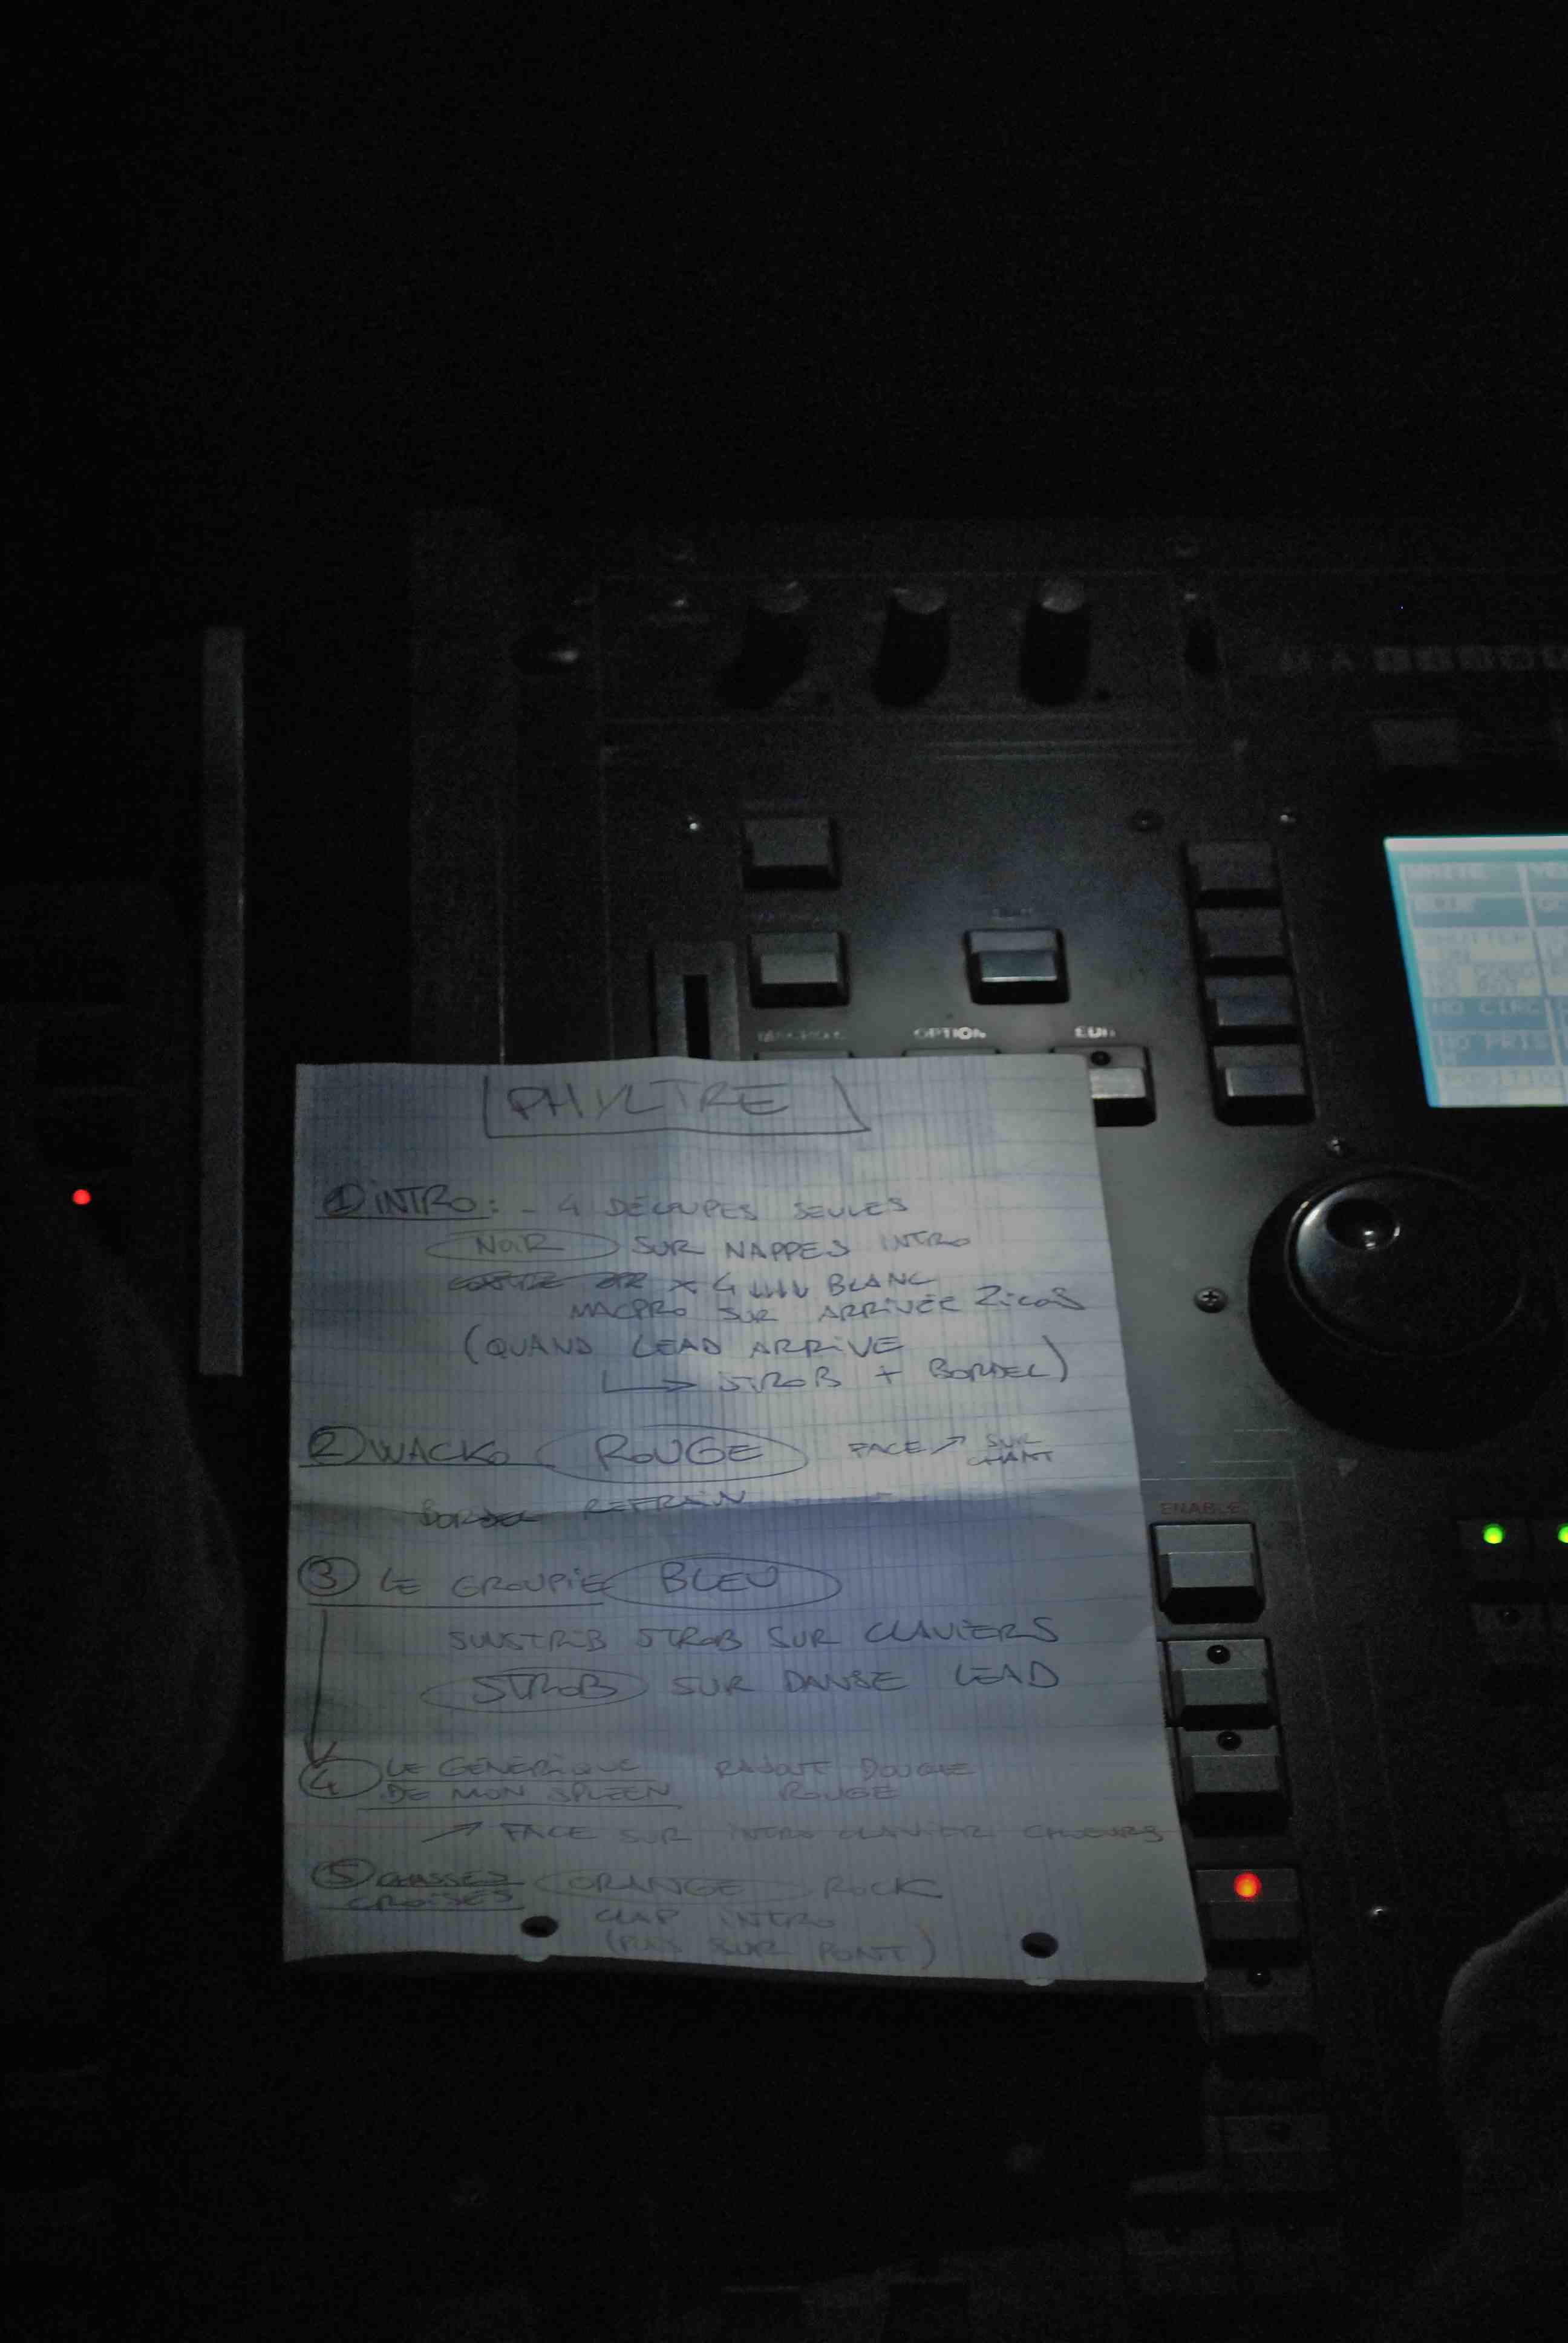 OPTION
EDIT
WHITE
SHUTTER
ENABLE
PHYLTRE
① INTRO: - 4 DÉCOUPES SEULES
NOIR SUR NAPPES INTRO
x 4 ↓↓↓↓ BLANC
MACPRO SUR ARRIVÉE ZICOS
(QUAND LEAD ARRIVE
↳ STROB + BORDEL)
② WACKO ROUGE FACE ↗ SUR CHANT
BORDEL REFRAIN
③ LE GROUPIE BLEU
SUNSTRIB STROB SUR CLAVIERS
STROB SUR DANSE LEAD
④ LE GÉNÉRIQUE RAJOUT DOUCHE
DE MON SPLEEN ROUGE
↗ FACE SUR INTRO CLAVIER CHOEURS
⑤ CHASSES ORANGE ROCK
CROISÉS
CLAP INTRO
(PUIS SUR PONT)